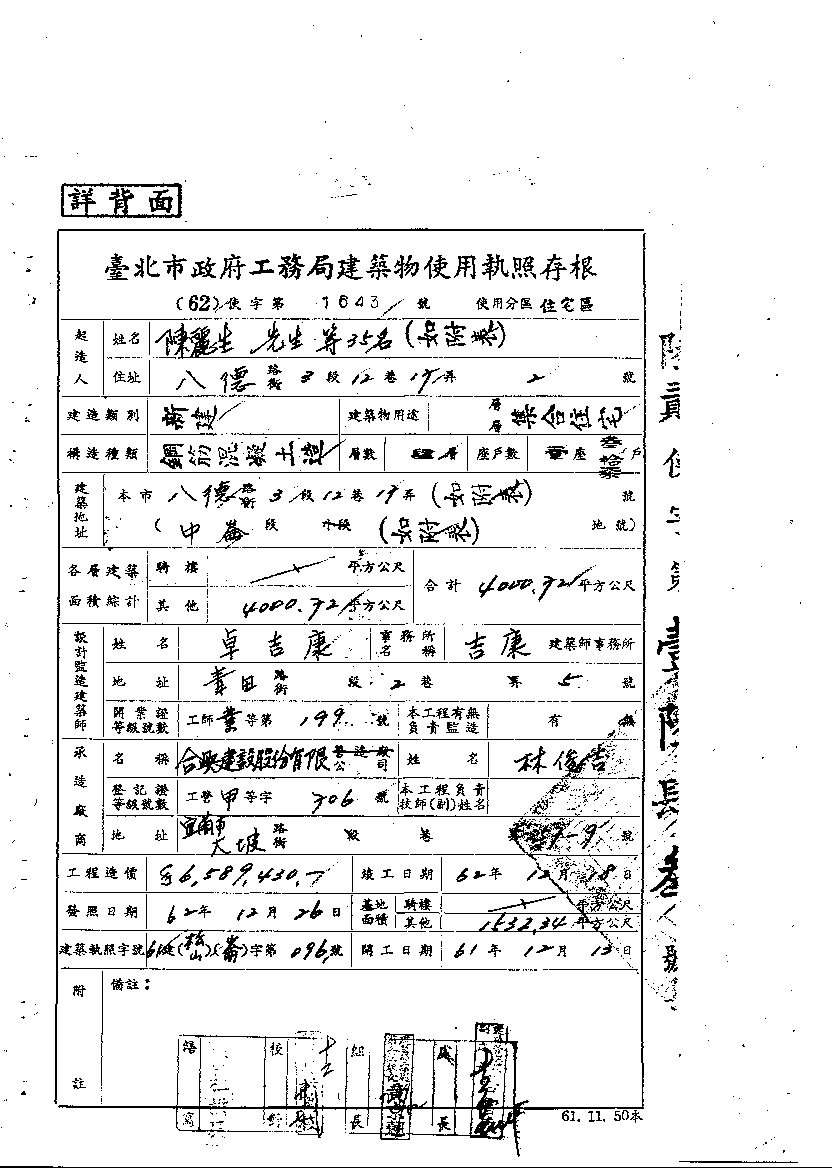 詳背面
臺北市政府工務局建築物使用執照存根
(62)使字第 1643 號 使用分區 住宅區
起造人 姓名 陳麗生 先生 等35名(如附表)
住址 八德路街 3段12巷17弄 2 號
建造類別 新建 建築物用途 層層 集合住宅
構造種類 鋼筋混凝土造 層數 層 座戶數 座 叁拾 戶
建築地址 本市 八德路街 3段12巷17弄(如附表) 號
(中崙段 小段 (如附表) 地號)
各層建築面積綜計 騎樓 平方公尺 合計 4000.72 平方公尺
其他 4000.72 平方公尺
設計監造建築師 姓名 卓吉康 事務所名稱 吉康 建築師事務所
地址 路街 段 2 巷 弄 5 號
開業證等級號數 工師業等第 199 號 本工程有無負責監造 有 無
承造廠商 名稱 合興建設股份有限公司 姓名 林俊吉
登記證等級號數 工營甲等字 306 號 本工程負責技師(副)姓名
地址 大坡 路街 段 巷 號
工程造價 $6,589,430.- 竣工日期 62年 12月 18日
發照日期 62年 12月 26日 基地面積 騎樓 平方公尺
其他 1532.34 平方公尺
建築執照字號 61建(松山)(崙)字第 096 號 開工日期 61年 12月 13日
附註 備註：
繕寫 校對 組長 處長
61.11.50本